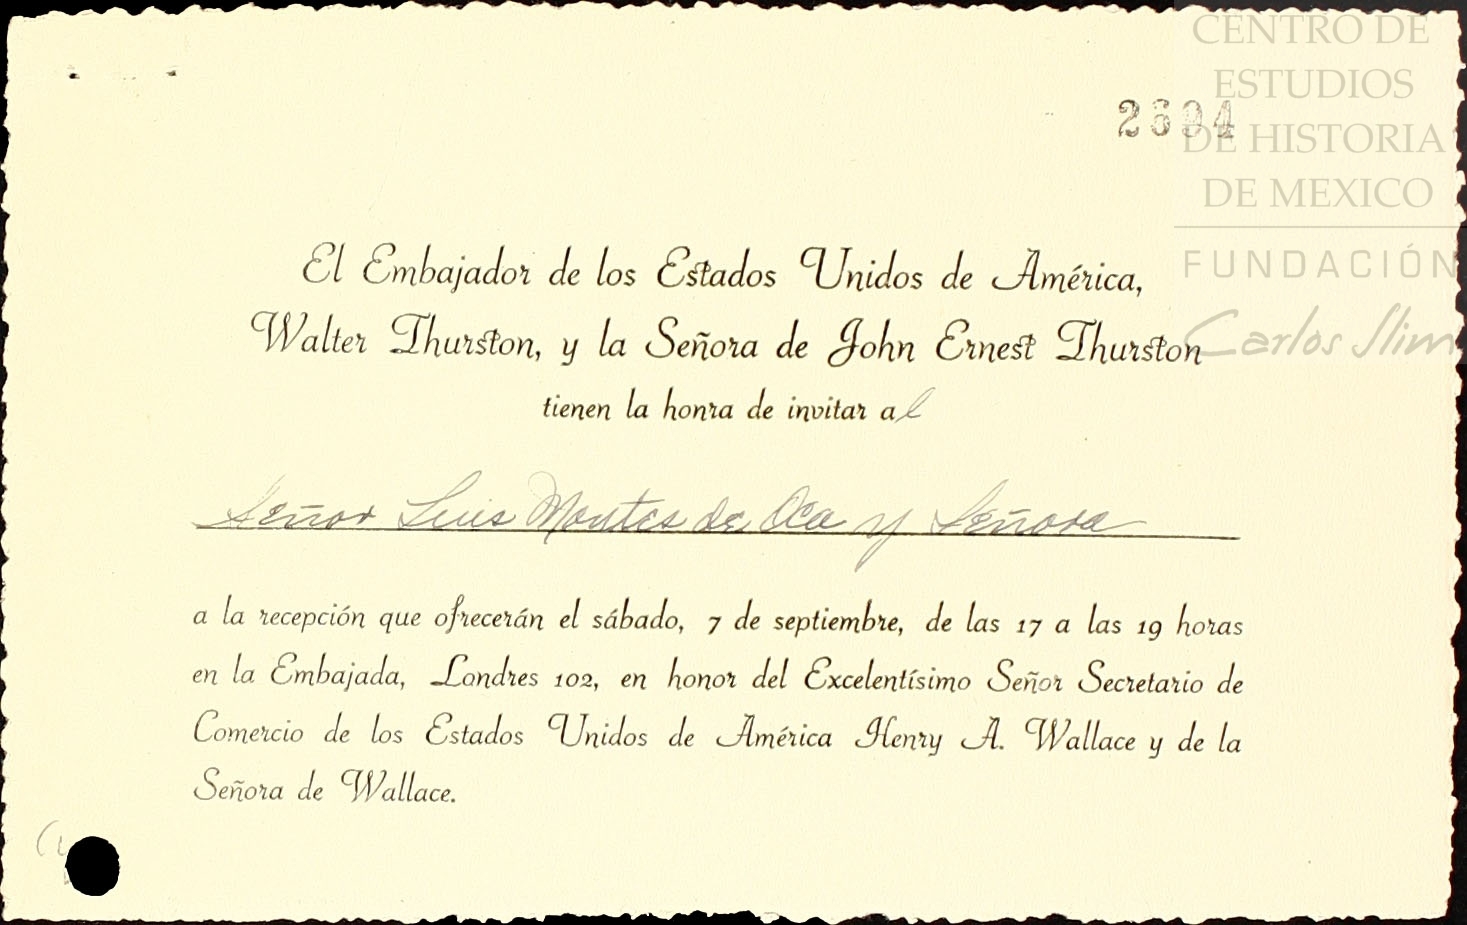 CENTRO DE
ESTUDIOS
DE HISTORIA
DE MEXICO
FUNDACIÓN
Carlos Slim
2694
El Embajador de los Estados Unidos de América,
Walter Thurston, y la Señora de John Ernest Thurston
tienen la honra de invitar al
Señor Luis Montes de Oca y Señora
a la recepción que ofrecerán el sábado, 7 de septiembre, de las 17 a las 19 horas
en la Embajada, Londres 102, en honor del Excelentísimo Señor Secretario de
Comercio de los Estados Unidos de América Henry A. Wallace y de la
Señora de Wallace.